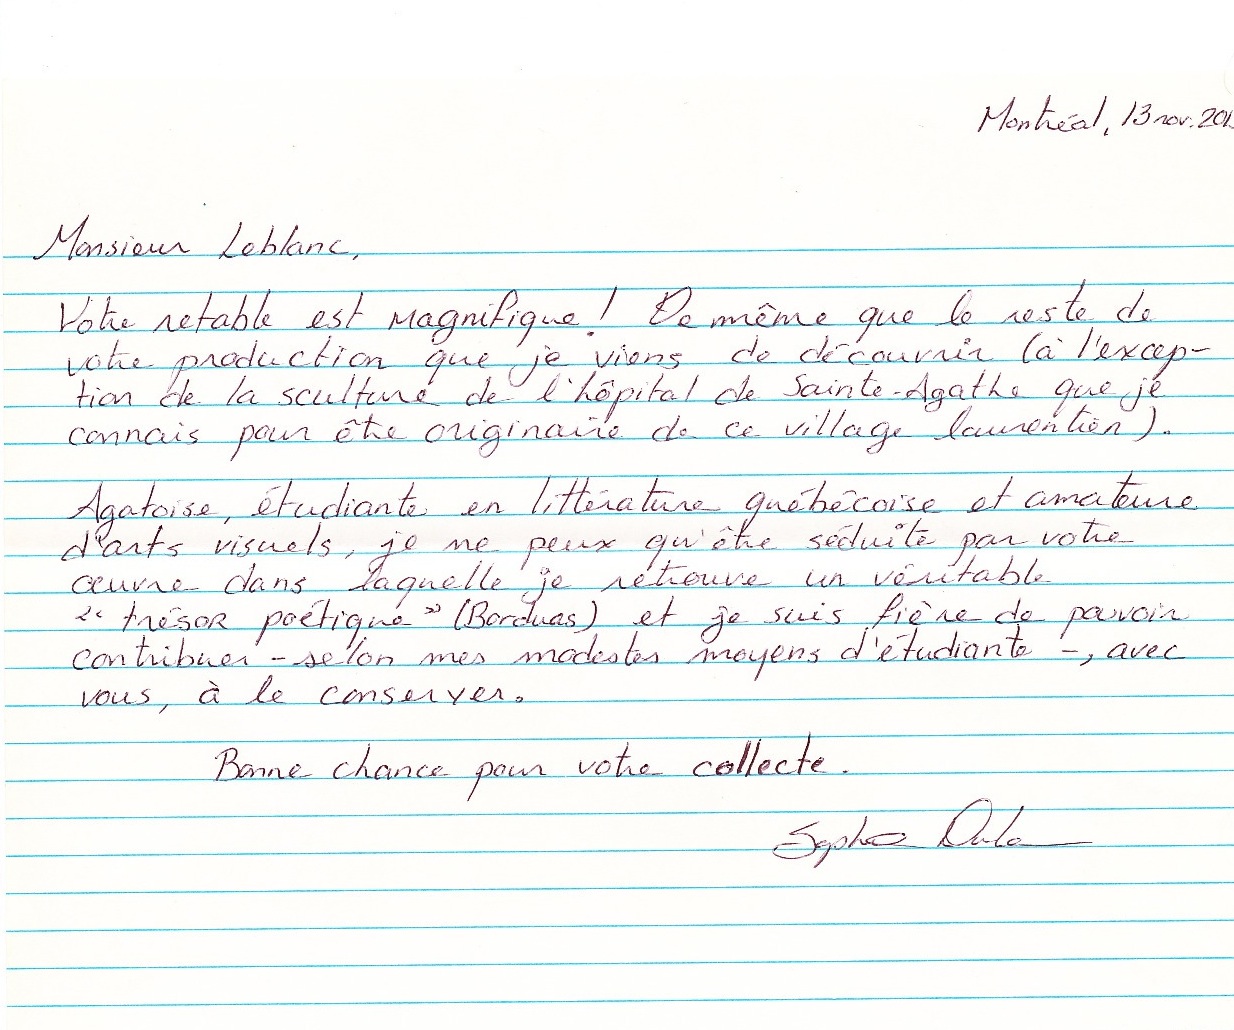 Montréal, 13 nov. 201
Monsieur Leblanc,
Votre retable est magnifique! De même que le reste de
votre production que je viens de découvrir (à l'excep-
tion de la sculture de l'hôpital de Sainte-Agathe que je
connais pour être originaire de ce village laurentien).
Agatoise, étudiante en littérature québécoise et amateure
d'arts visuels, je ne peux qu'être séduite par votre
œuvre dans laquelle je retrouve un véritable
“ trésor poétique ” (Borduas) et je suis fière de pouvoir
contribuer - selon mes modestes moyens d'étudiante -, avec
vous, à le conserver.
Bonne chance pour votre collecte.